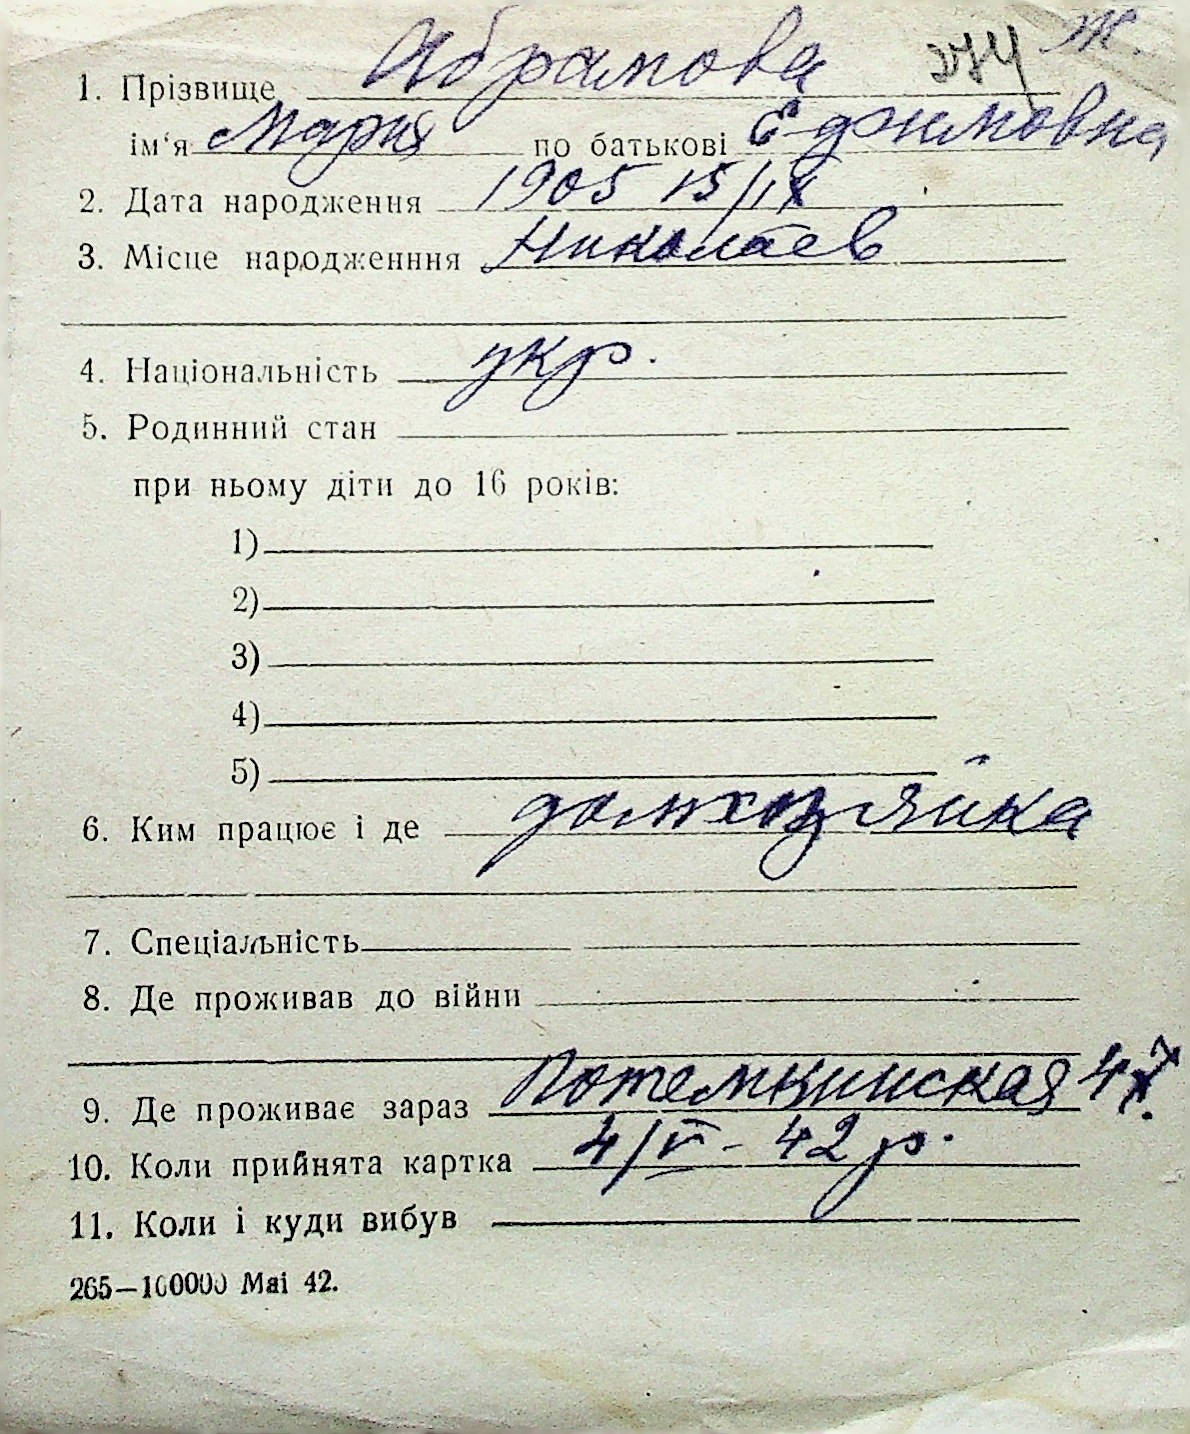 Ж.
274
1. Прізвище Абрамова
ім'я Мария по батькові Ефимовна
2. Дата народження 1905 15/IX
3. Місце народженння Николаев
4. Національність укр.
5. Родинний стан
при ньому діти до 16 років:
1)
2)
3)
4)
5)
6. Ким працює і де домхозяйка
7. Спеціальність
8. Де проживав до війни
9. Де проживає зараз Потемкинская 47
10. Коли прийнята картка 4/V - 42 р.
11. Коли і куди вибув
265—100000 Mai 42.